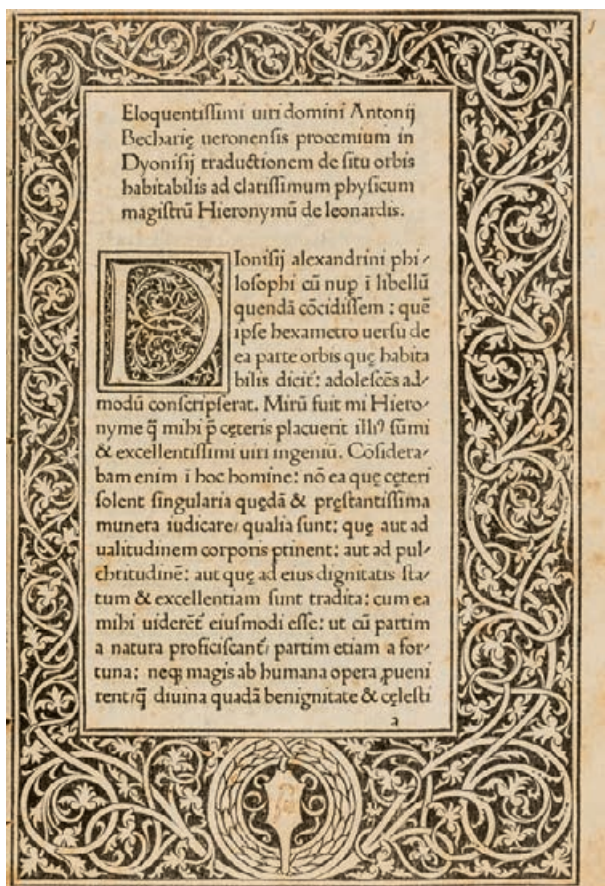 Eloquentiſſimi uiri domini Antonij
Becharię ueronenſis proœmium in
Dyoniſij traductionem de ſitu orbis
habitabilis ad clariſſimum phyſicum
magiſtrū Hieronymū de leonardis.
DIoniſij alexandrini phi⸗
loſophi cū nuꝑ ī libellū
quendā cōcidiſſem : quē
ipſe hexametro uerſu de
ea parte orbis quę habita
bilis dicit᷑: adoleſcēs ad⸗
modū conſcripſerat. Mirū fuit mi Hiero⸗
nyme q̄ mihi p̄ cęteris placuerit illiꝰ ſūmi
& excellentiſſimi uiri ingeniū. Cōſidera⸗
bam enim ī hoc homine: nō ea quę cęteri
ſolent ſingularia quędā & pręſtantiſſima
munera iudicare/ qualia ſunt: quę aut ad
ualitudinem corporis ꝑtinent: aut ad pul⸗
chritudinē: aut quę ad eius dignitatis ſta⸗
tum & excellentiam ſunt tradita: cum ea
mihi uiderēt᷑ eiuſmodi eſſe: ut cū partim
a natura proficiſcant᷑/ partim etiam a for⸗
tuna: neqꝫ magis ab humana opera ꝓueni
rent/q̄ diuina quadā benignitate & cęleſti
a